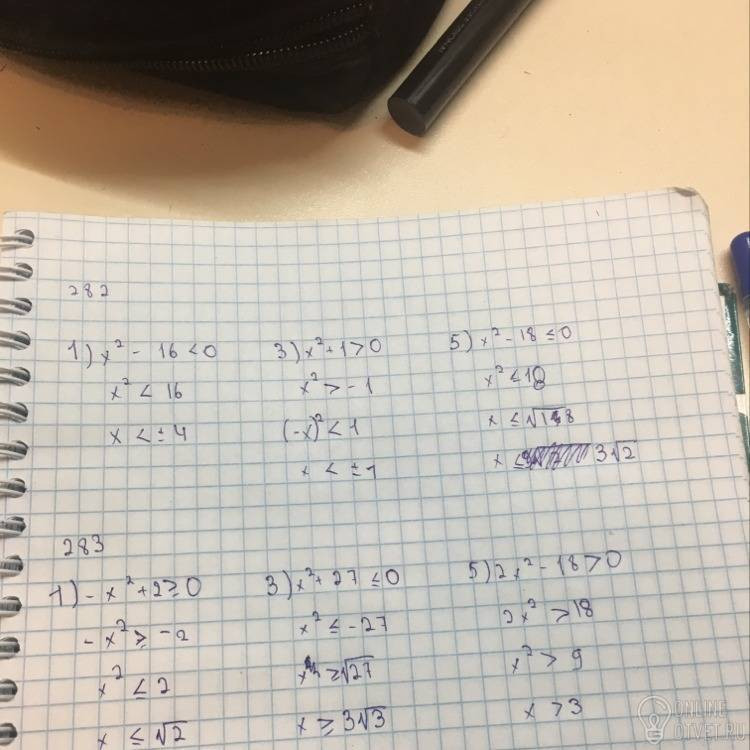 282
1) x² - 16 < 0
x² < 16
x < ± 4
3) x² + 1 > 0
x² > -1
(-x)² < 1
x < ± 1
5) x² - 18 ≤ 0
x² ≤ 18
x ≤ √18
x ≤ 3√2
283
1) -x² + 2 ≥ 0
-x² ≥ -2
x² ≤ 2
x ≤ √2
3) x² + 27 ≤ 0
x² ≤ -27
x ≥ √27
x ≥ 3√3
5) 2x² - 18 > 0
2x² > 18
x² > 9
x > 3
ONLINE
OTVET.RU